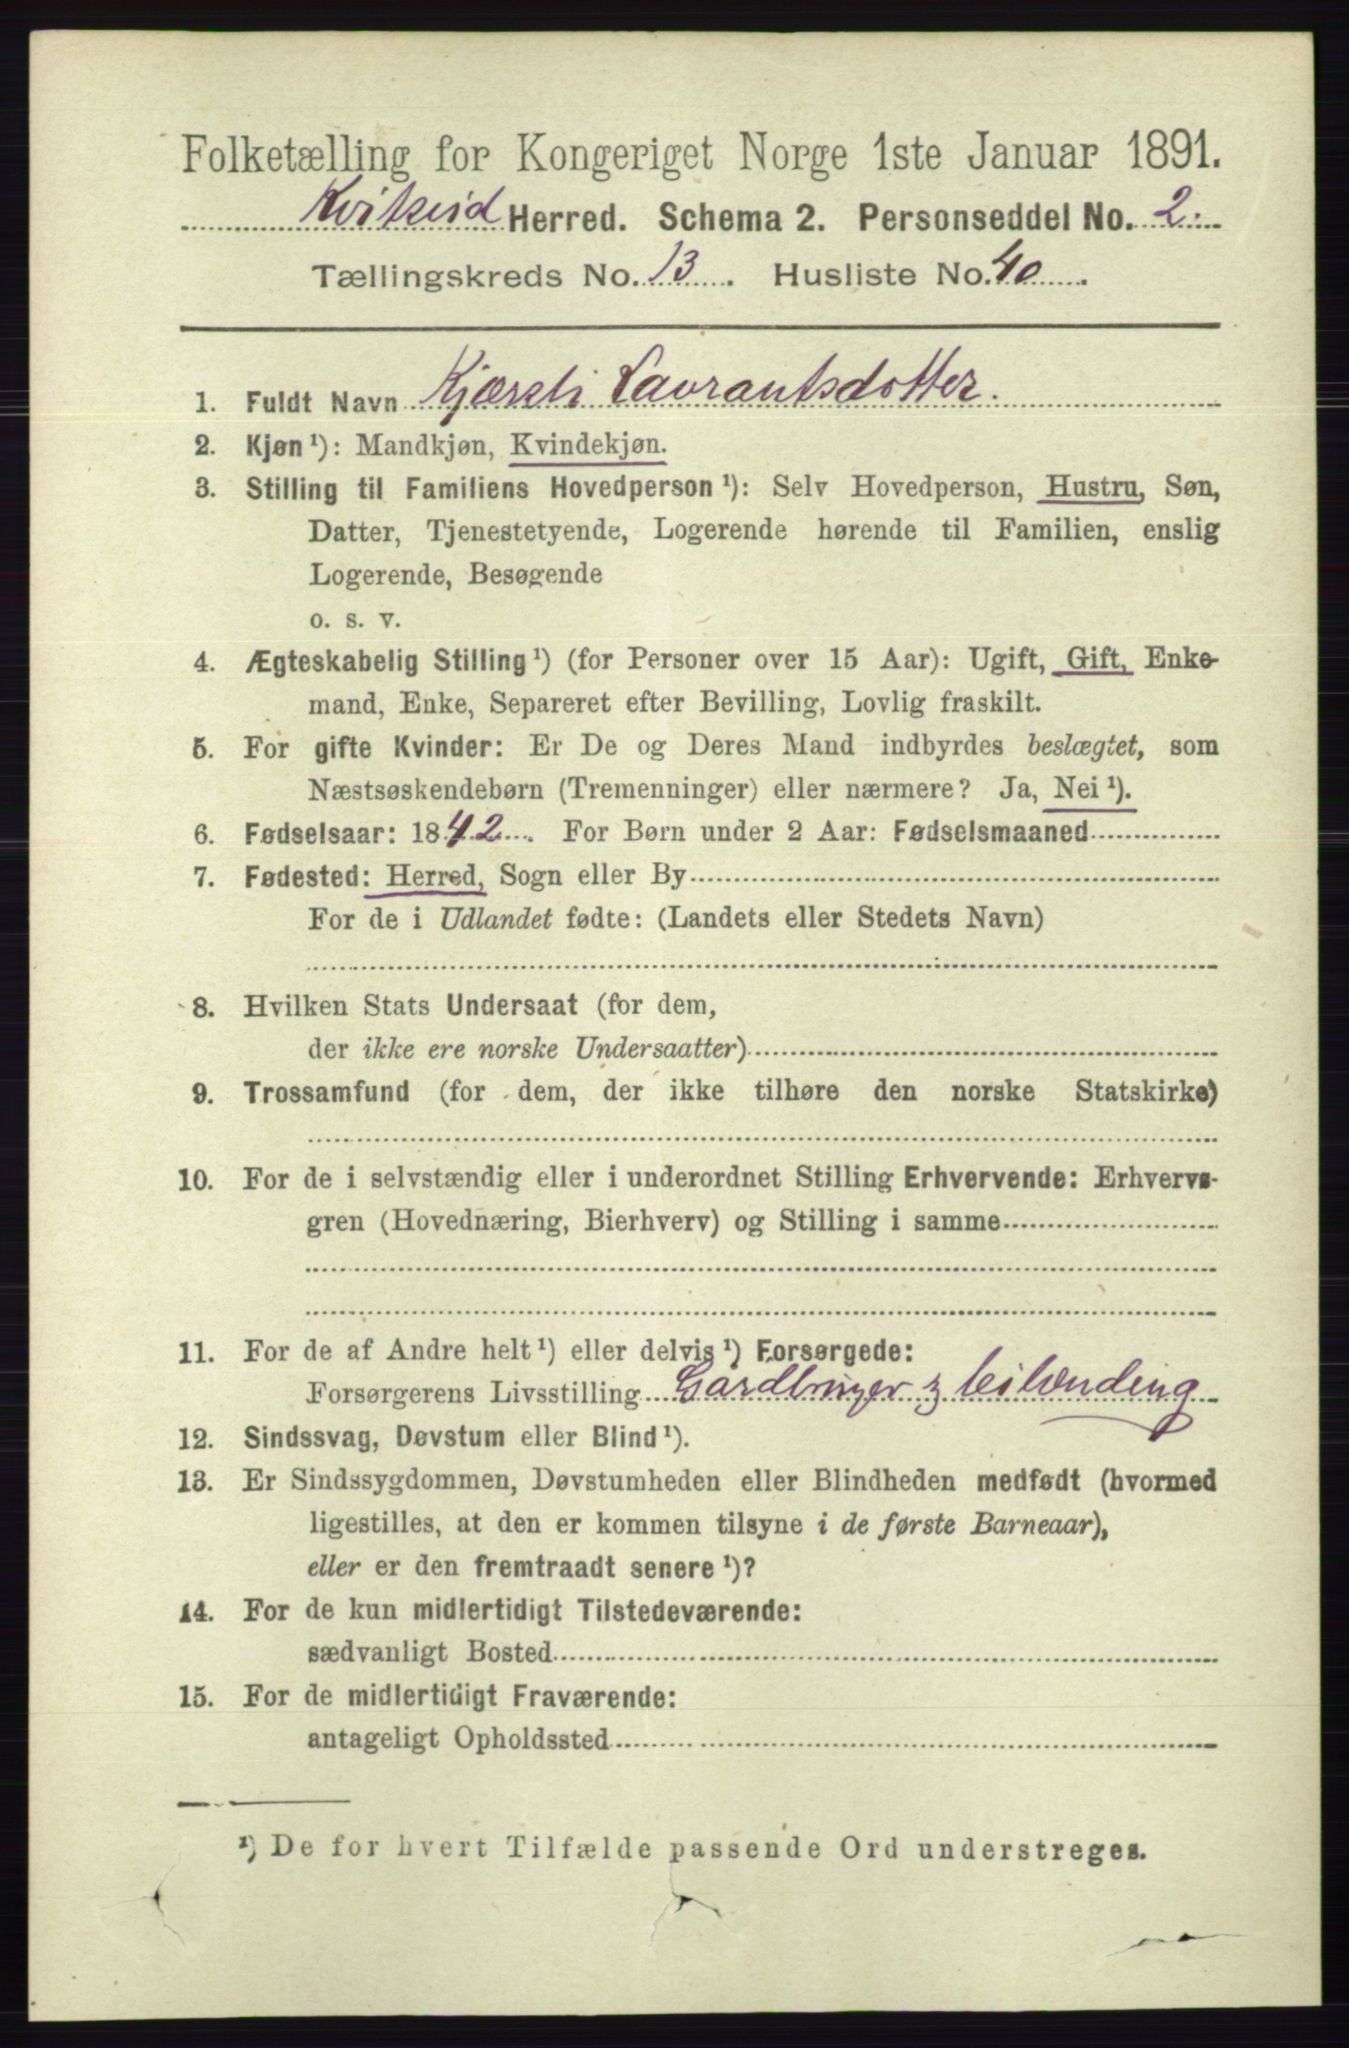 Folketælling for Kongeriget Norge 1ste Januar 1891.
Kvitseid Herred. Schema 2. Personseddel No. 2.
Tællingskreds No. 13. Husliste No. 40.
1. Fuldt Navn Kjærsti Lavrantsdotter.
2. Kjøn ¹): Mandkjøn, Kvindekjøn.
3. Stilling til Familiens Hovedperson ¹): Selv Hovedperson, Hustru, Søn,
Datter, Tjenestetyende, Logerende hørende til Familien, enslig
Logerende, Besøgende
o. s. v.
4. Ægteskabelig Stilling ¹) (for Personer over 15 Aar): Ugift, Gift, Enke-
mand, Enke, Separeret efter Bevilling, Lovlig fraskilt.
5. For gifte Kvinder: Er De og Deres Mand indbyrdes beslægtet, som
Næstsøskendebørn (Tremenninger) eller nærmere? Ja, Nei ¹).
6. Fødselsaar: 1842. For Børn under 2 Aar: Fødselsmaaned
7. Fødested: Herred, Sogn eller By
For de i Udlandet fødte: (Landets eller Stedets Navn)
8. Hvilken Stats Undersaat (for dem,
der ikke ere norske Undersaatter)
9. Trossamfund (for dem, der ikke tilhøre den norske Statskirke)
10. For de i selvstændig eller i underordnet Stilling Erhvervende: Erhvervs-
gren (Hovednæring, Bierhverv) og Stilling i samme
11. For de af Andre helt ¹) eller delvis ¹) Forsørgede:
Forsørgerens Livsstilling Gardbruger
12. Sindssvag, Døvstum eller Blind ¹).
13. Er Sindssygdommen, Døvstumheden eller Blindheden medfødt (hvormed
ligestilles, at den er kommen tilsyne i de første Barneaar),
eller er den fremtraadt senere ¹)?
14. For de kun midlertidigt Tilstedeværende:
sædvanligt Bosted
15. For de midlertidigt Fraværende:
antageligt Opholdssted
¹) De for hvert Tilfælde passende Ord understreges.